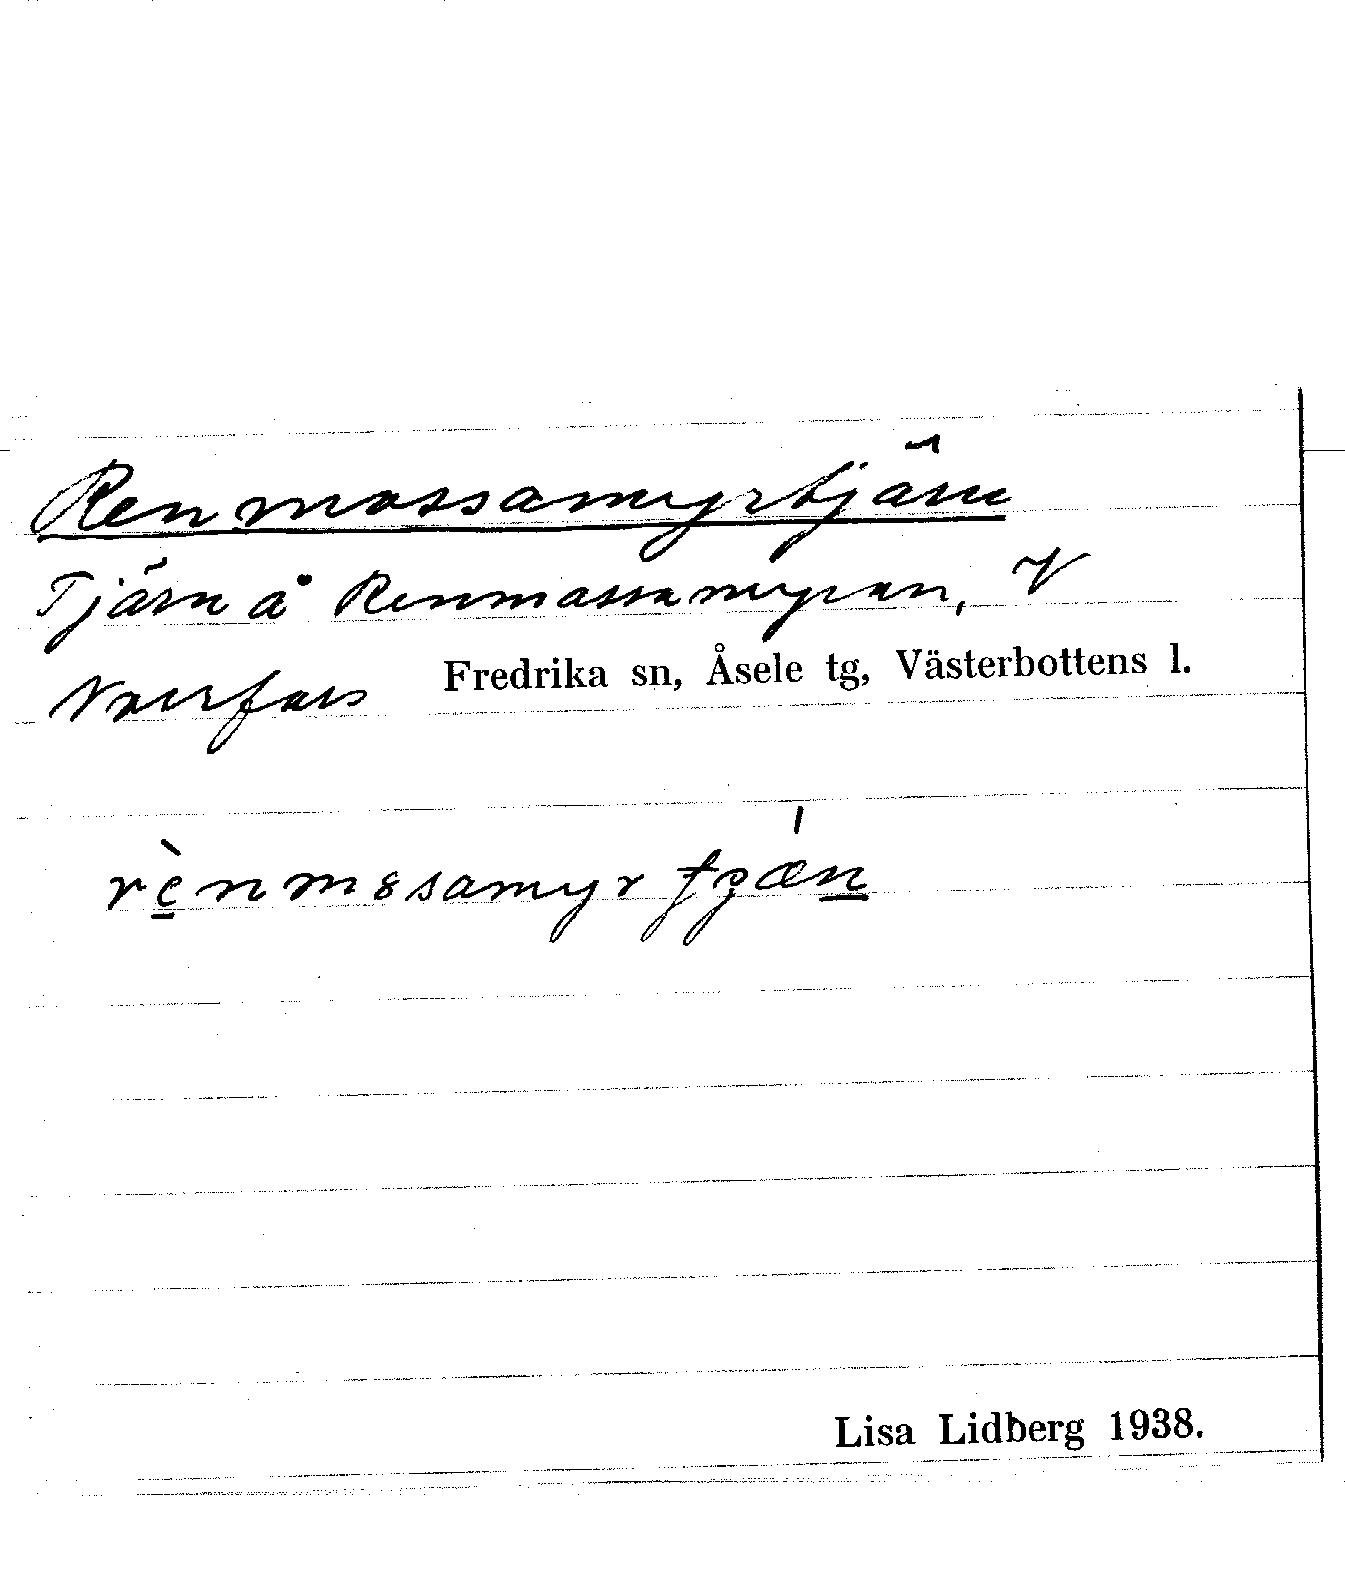 Renmossamyrtjärn
Tjärn å Renmossamyran, V
Norrfors Fredrika sn, Åsele tg, Västerbottens l.
Lisa Lidberg 1938.